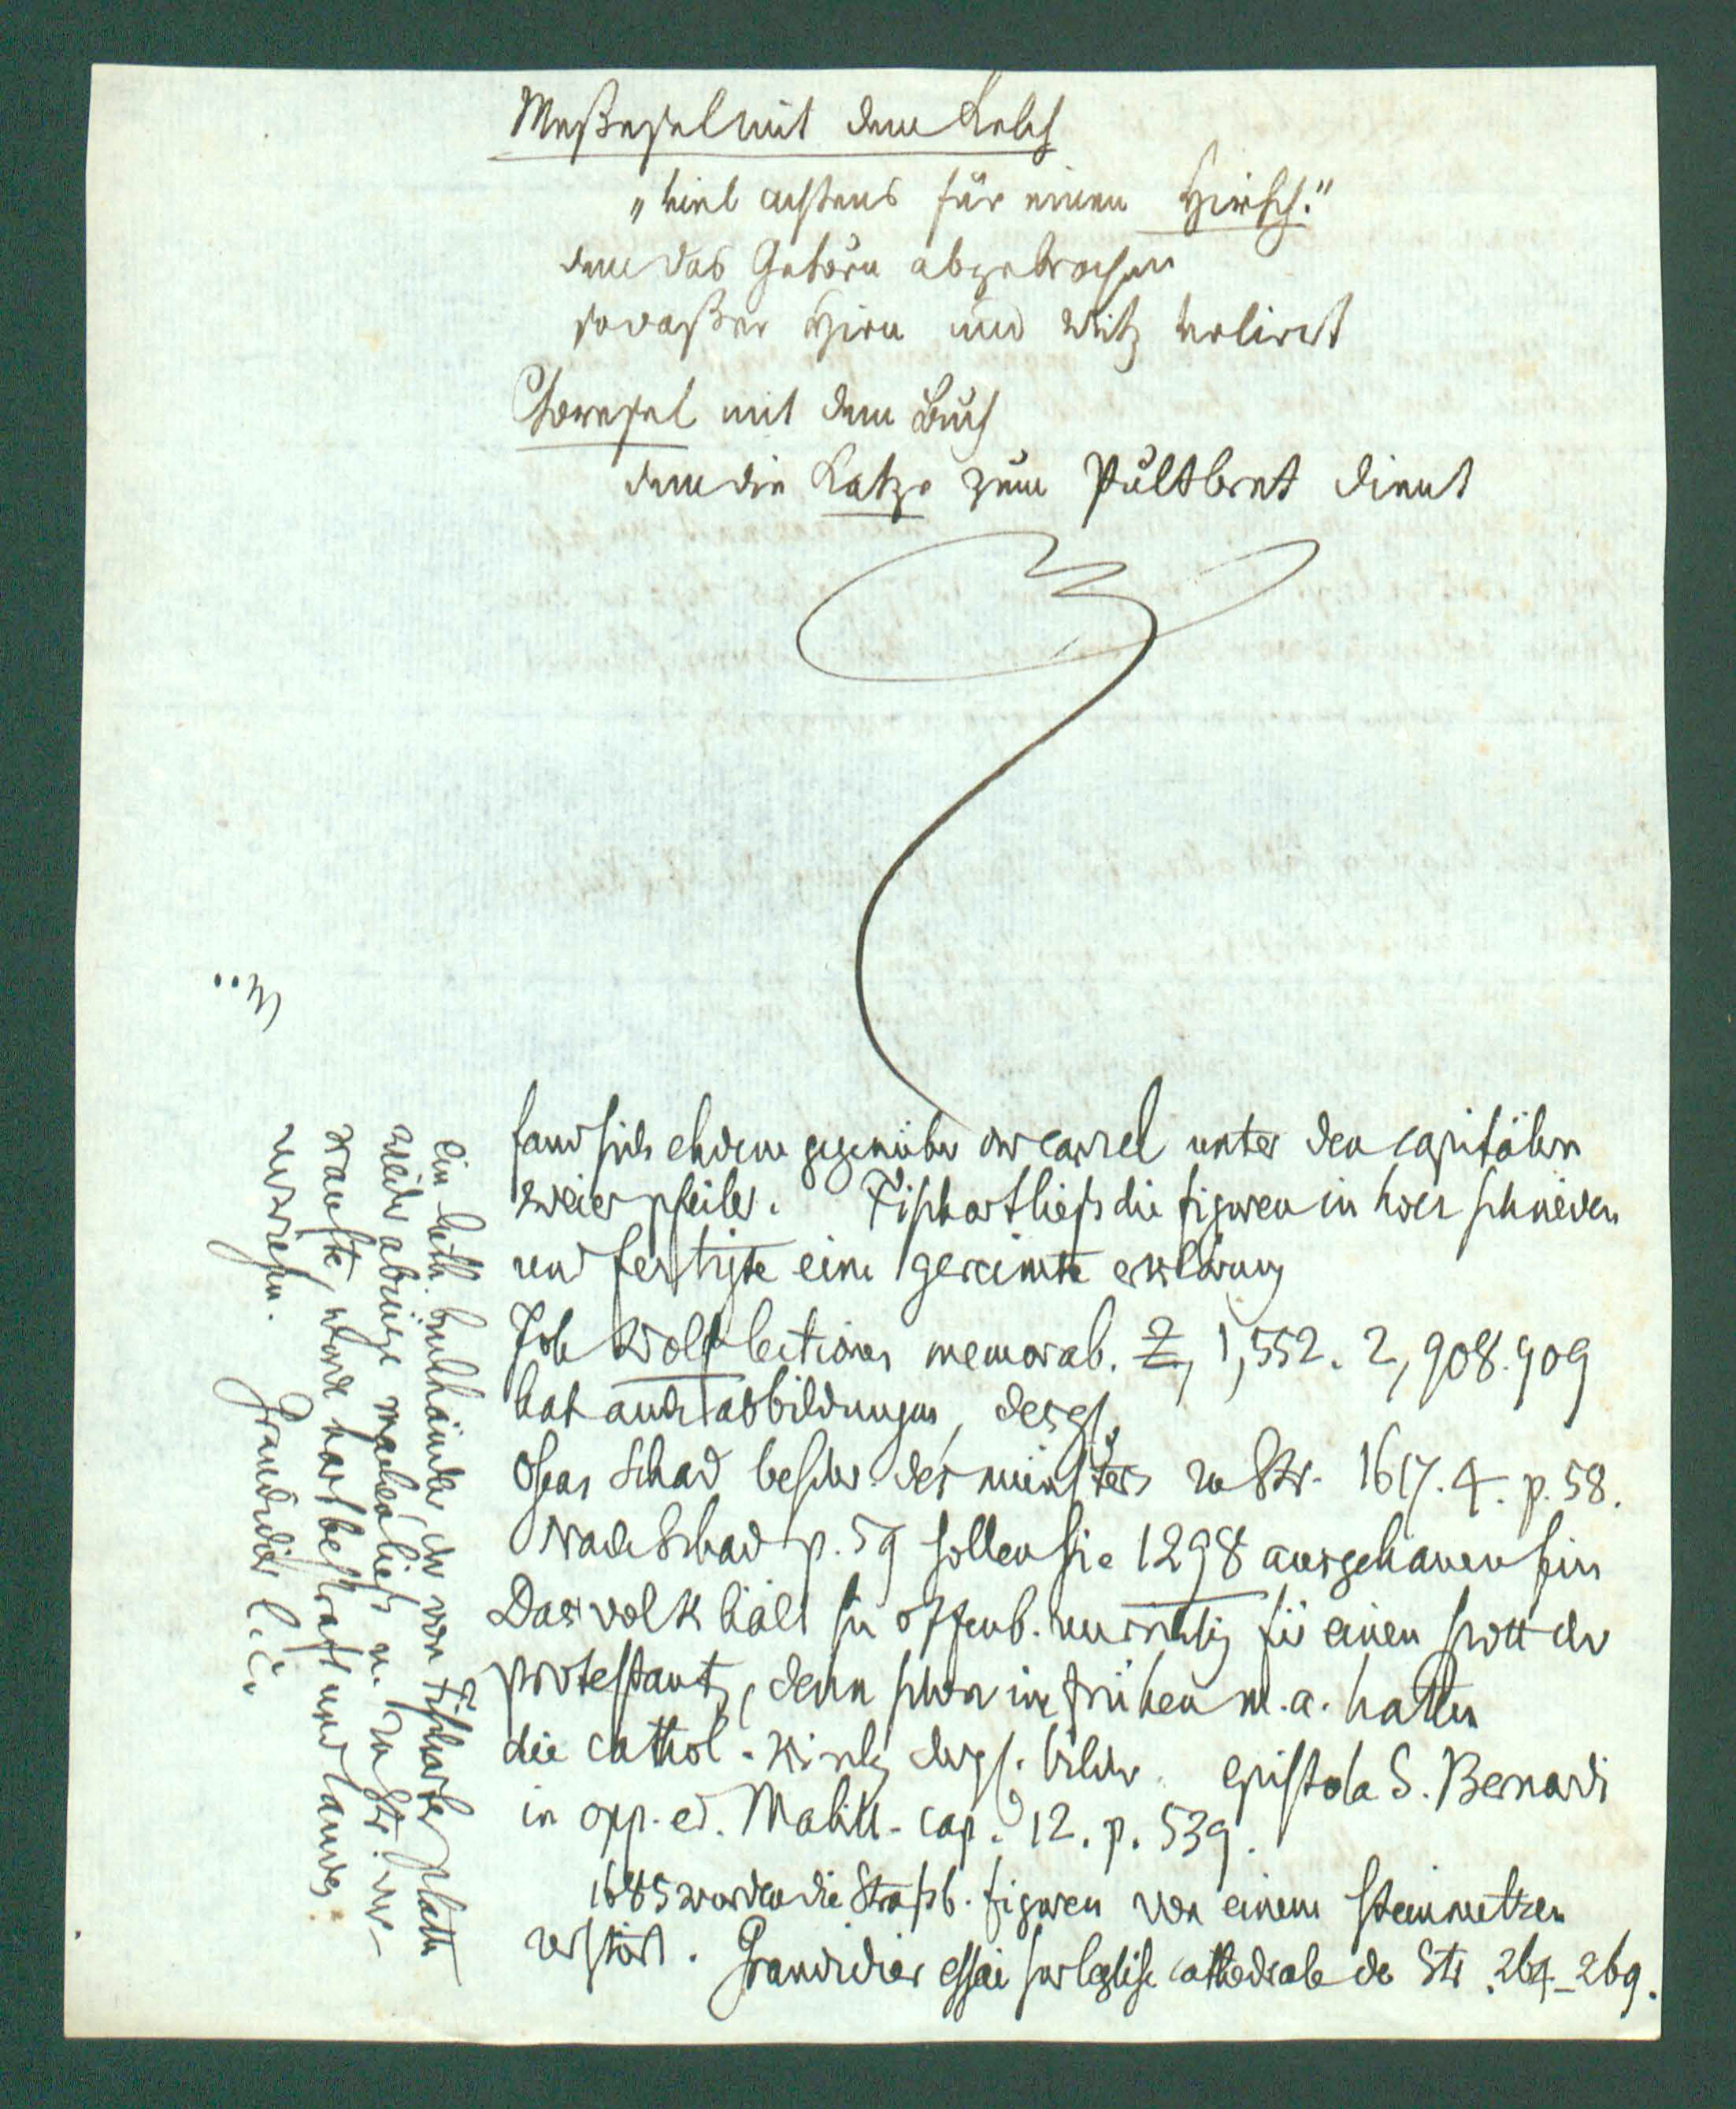 Meßesel mit dem Kelch
„viel achtens für einen Hirsch."
dem das Gehörn abgebrochen
sodaßer Hirn und Witz verliert
Choresel mit dem Buch
dem die Katze zum Pultbret dient
fand sich ehdem gegenüber der canzel unter den capitälern
zweier pfeiler. Fischart ließ die figuren in holz schneiden
und fertigte eine gereimte erklärung
Joh Wolf lectiones memorab. 2, 1,552. 2, 908.909
hat auch abbildungen, desgl.
Oseas Schad beschr. des münsters zu Str. 1617. 4. p. 58.
Nach Schad p. 59 sollen sie 1298 ausgehauen sein
Das volk hält sie offenb. unrichtig für einen spott der
protestant, denn schon im frühen m. a. hatten
die cathol. kirch dergl. bilder. epistola S. Bernardi
in opp. ed. Mabill. cap. 12. p. 539.
1685 wurden die Straßb. figuren von einem steinmetzen
zerstört. Grandidier essai sur l'eglise cathedrale de Str. 264–269.
Ein luth. buchhändler, der von Fischarts platte
wieder abzüge machen ließ u. zu Str. ver-
kaufte, wurde hart bestraft und landes
verwiesen. Grandidier l. c.